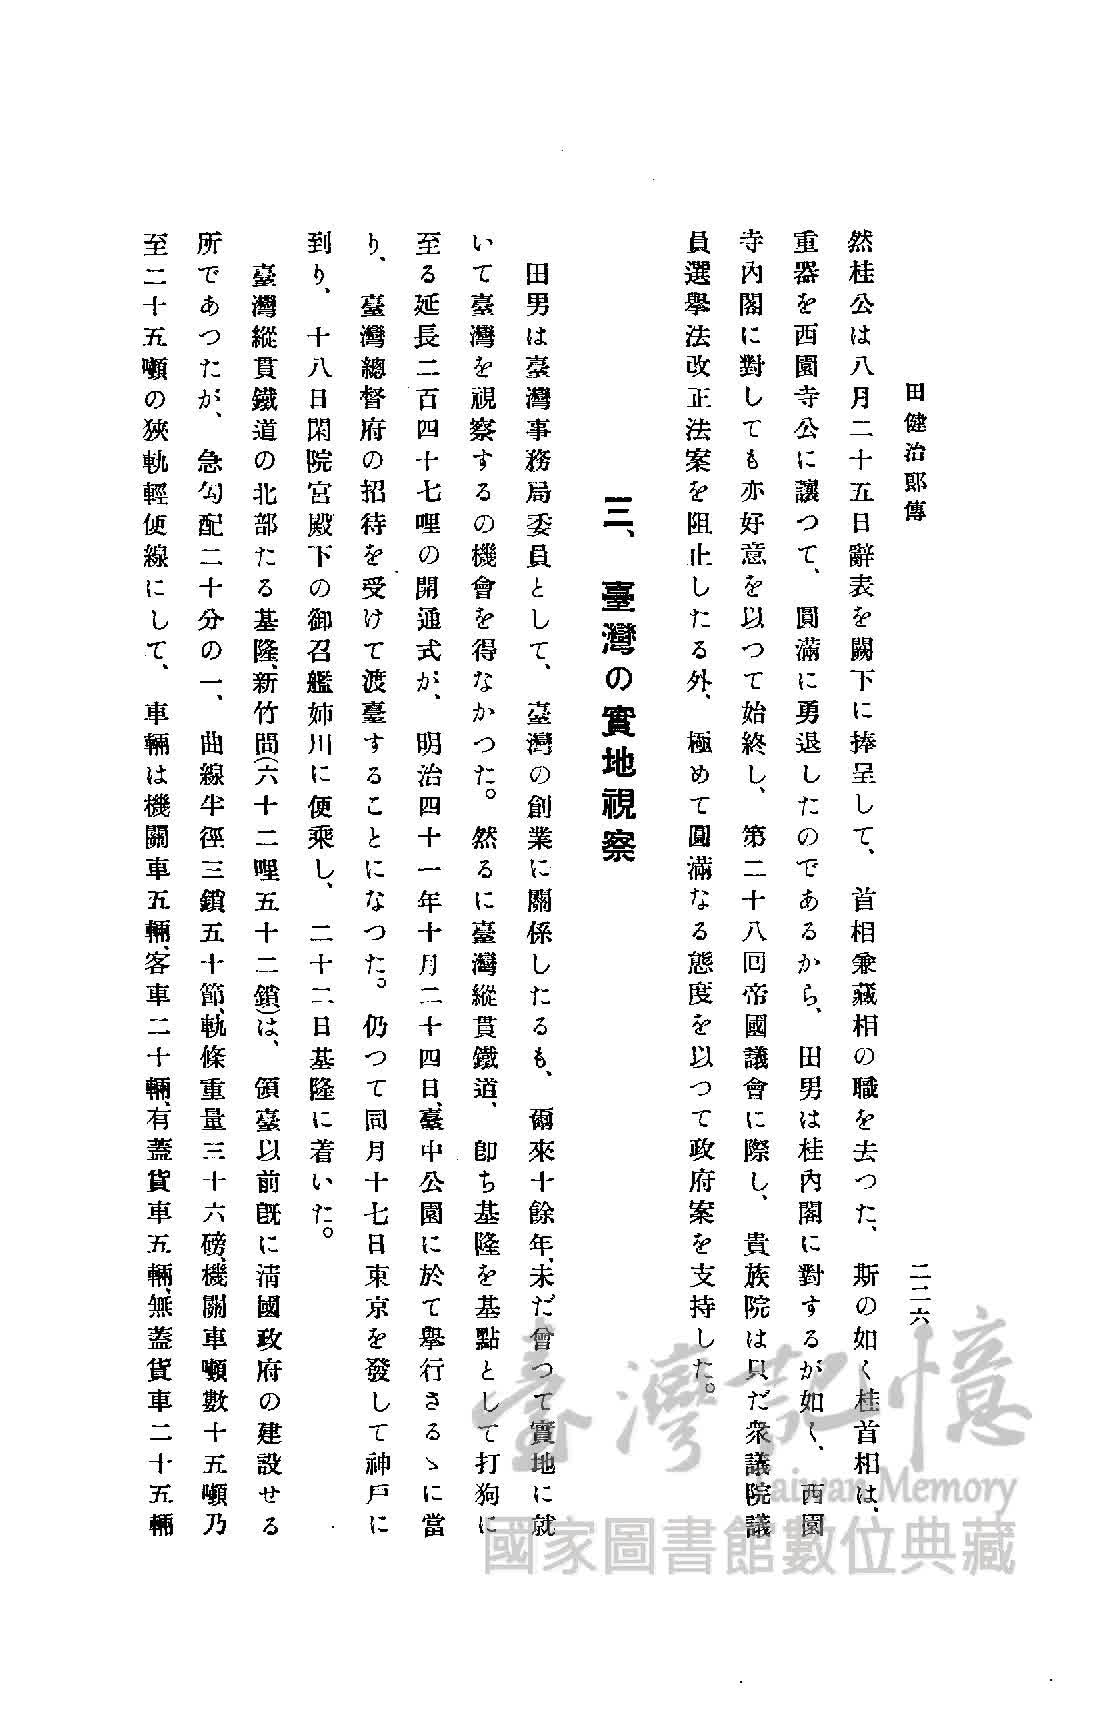 田健治郎傳
二二六
然桂公は八月二十五日辭表を闕下に捧呈して、首相兼藏相の職を去つた、斯の如く桂首相は、
重器を西園寺公に讓つて、圓滿に勇退したのであるから、田男は桂內閣に對するが如く、西園
寺內閣に對しても亦好意を以つて始終し、第二十八回帝國議會に際し、貴族院は只だ衆議院議
員選擧法改正法案を阻止したる外、極めて圓滿なる態度を以つて政府案を支持した。
三、臺灣の實地視察
田男は臺灣事務局委員として、臺灣の創業に關係したるも、爾來十餘年、未だ會つて實地に就
いて臺灣を視察するの機會を得なかつた。然るに臺灣縱貫鐵道、卽ち基隆を基點として打狗に
至る延長二百四十七哩の開通式が、明治四十一年十月二十四日、臺中公園に於て擧行さるゝに當
り、臺灣總督府の招待を受けて渡臺することになつた。仍つて同月十七日東京を發して神戶に
到り、十八日閑院宮殿下の御召艦姉川に便乘し、二十二日基隆に着いた。
臺灣縱貫鐵道の北部たる基隆、新竹間(六十二哩五十二鎖)は、領臺以前旣に淸國政府の建設せる
所であつたが、急勾配二十分の一、曲線半徑三鎖五十節、軌條重量三十六磅、機關車噸數十五噸乃
至二十五噸の狹軌輕便線にして、車輛は機關車五輛、客車二十輛、有蓋貨車五輛、無蓋貨車二十五輛
臺灣記憶
Taiwan Memory
國家圖書館數位典藏